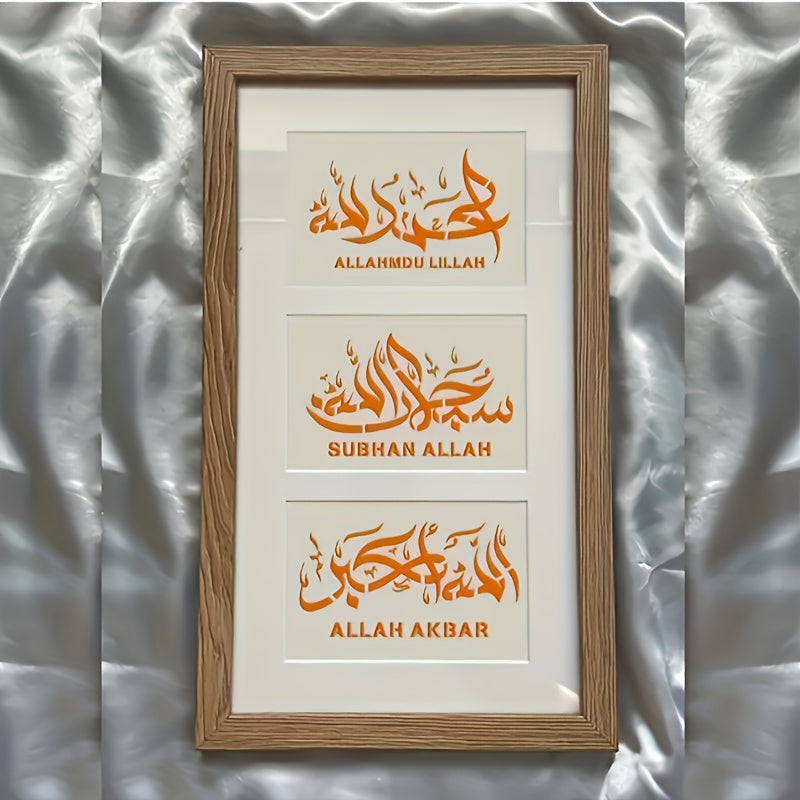 الحمد لله
ALLAHMDU LILLAH
سبحان الله
SUBHAN ALLAH
الله أكبر
ALLAH AKBAR